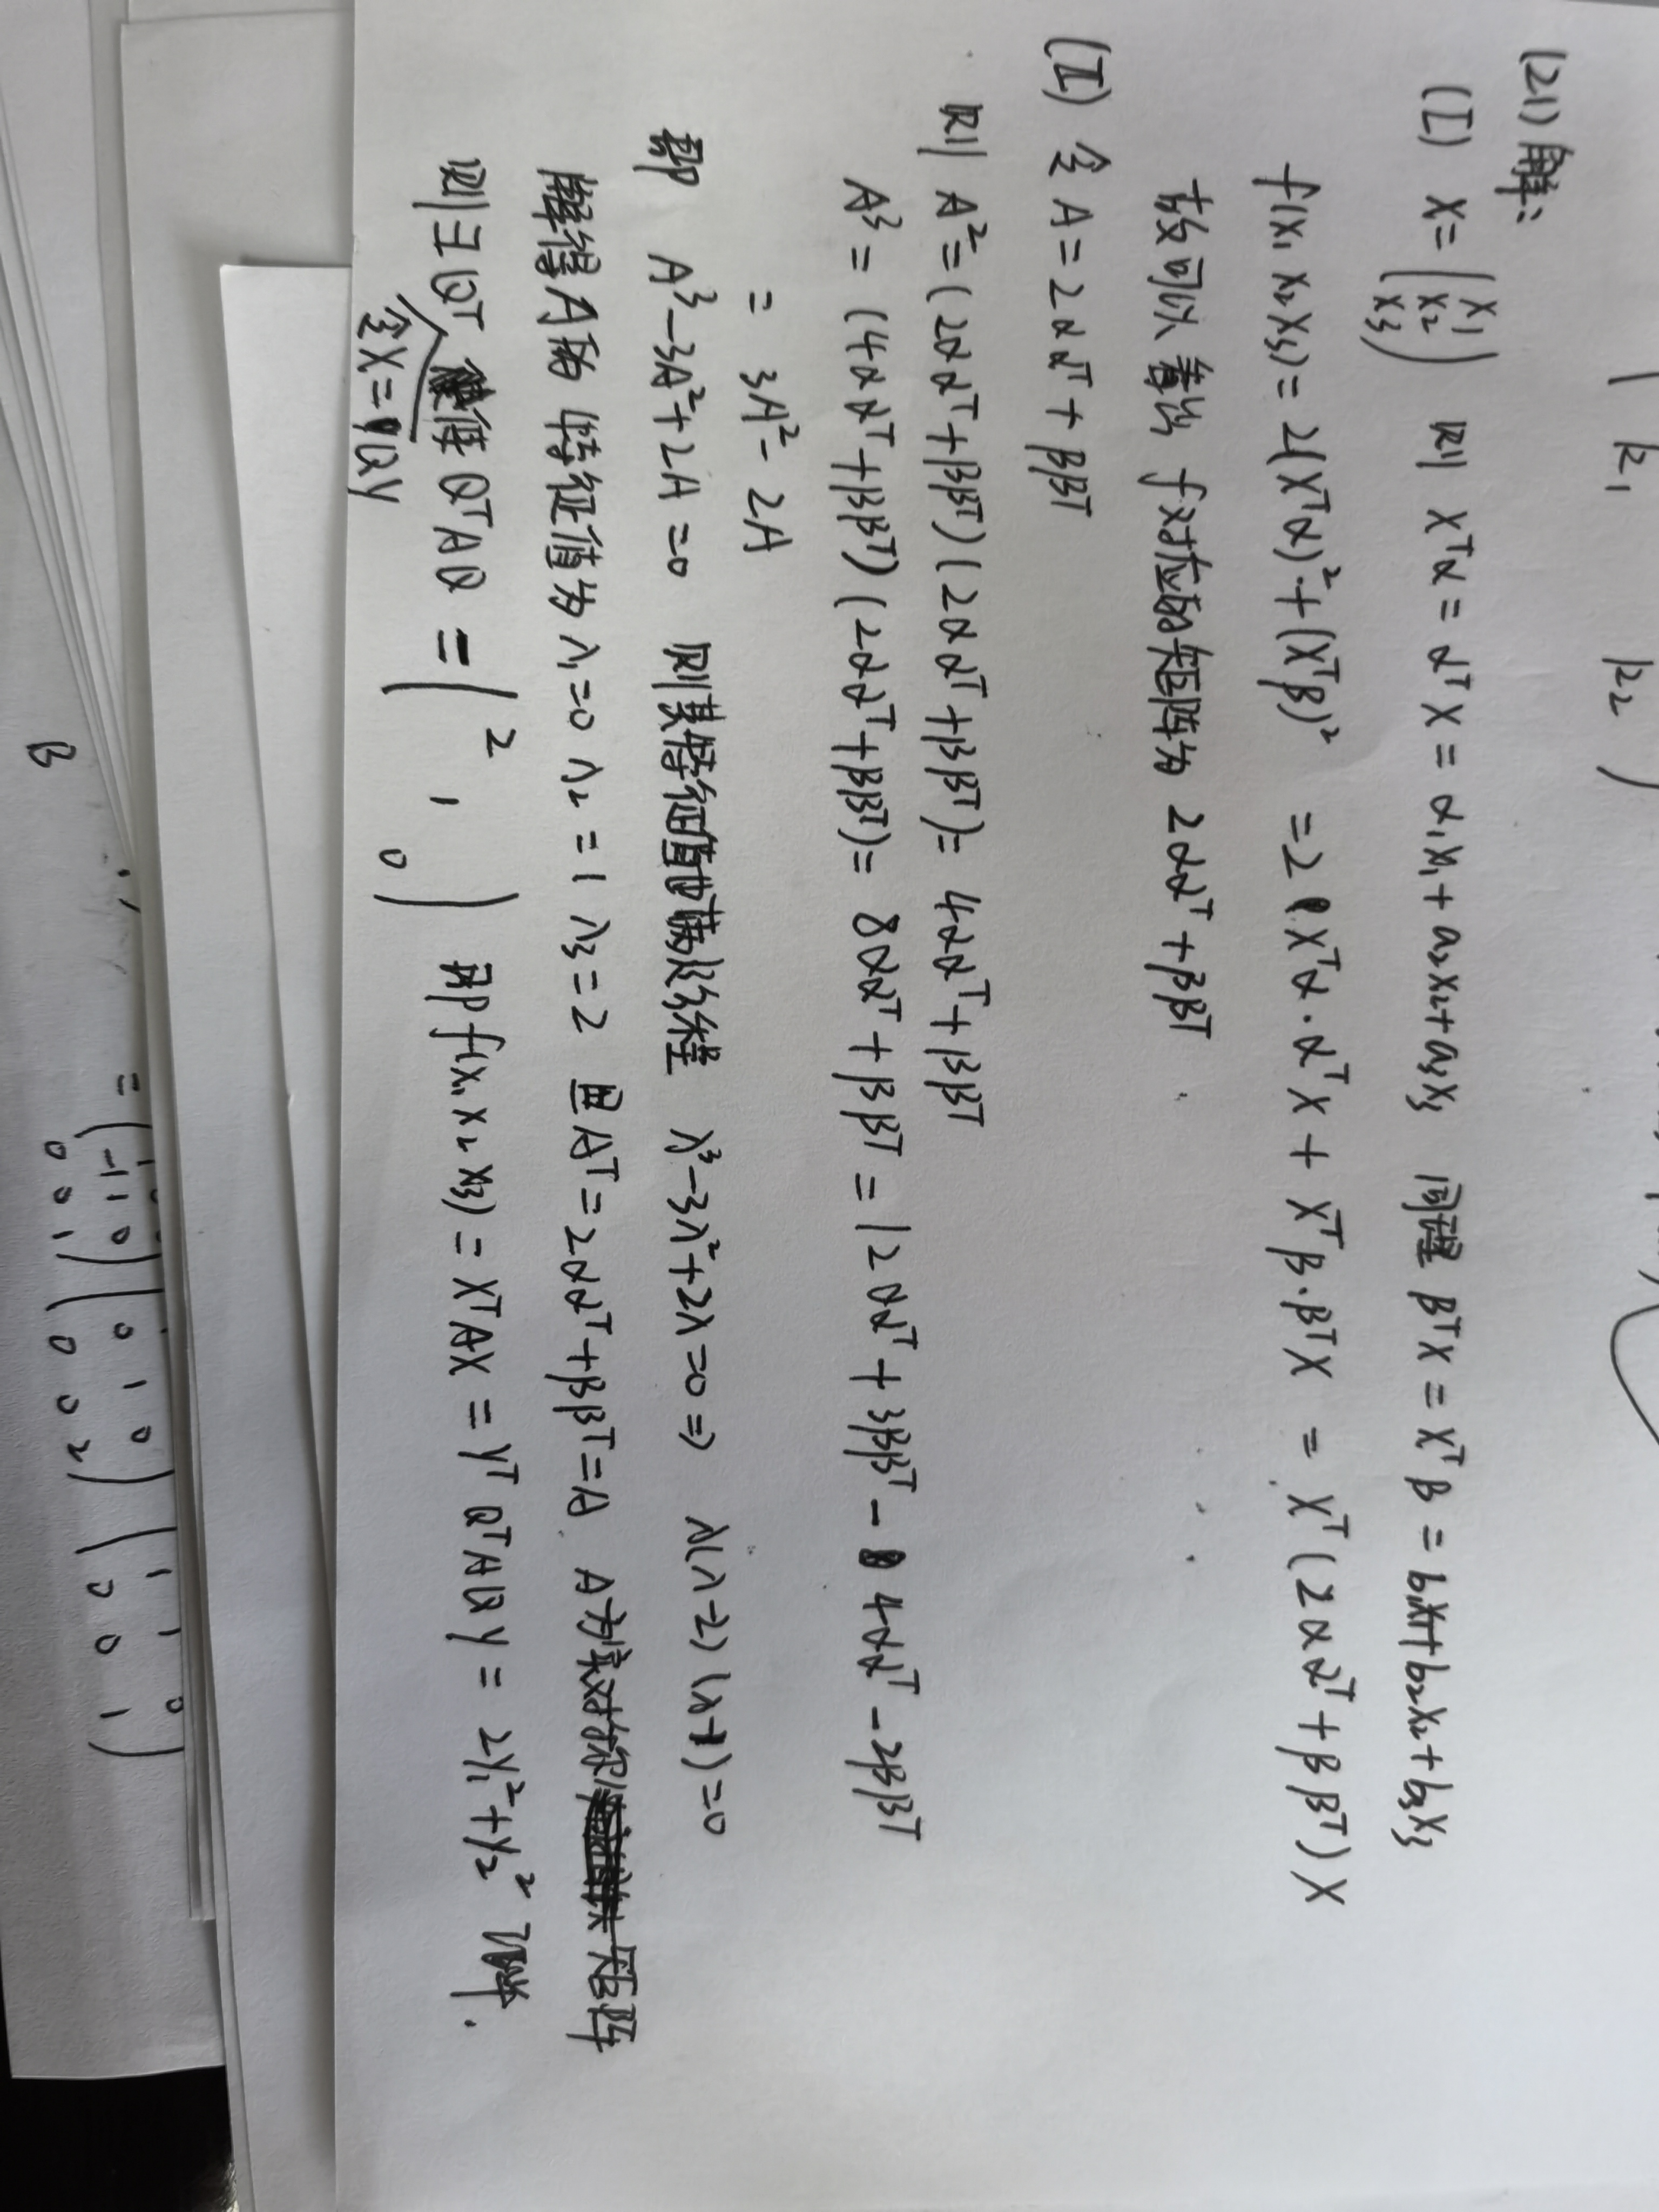 k₁ k₂
(21) 解:
(I) X = (x₁ x₂ x₃) 则 Xᵀα = αᵀX = a₁x₁ + a₂x₂ + a₃x₃ 同理 βᵀX = Xᵀβ = b₁x₁ + b₂x₂ + b₃x₃
f(x₁ x₂ x₃) = 2(Xᵀα)² + (Xᵀβ)² = 2 Xᵀα·αᵀX + Xᵀβ·βᵀX = Xᵀ(2ααᵀ + ββᵀ)X
故可以 f对应的矩阵为 2ααᵀ + ββᵀ
(II) 令 A = 2ααᵀ + ββᵀ
则 A² = (2ααᵀ + ββᵀ)(2ααᵀ + ββᵀ) = 4ααᵀ + ββᵀ
A³ = (4ααᵀ + ββᵀ)(2ααᵀ + ββᵀ) = 8ααᵀ + ββᵀ = 12ααᵀ + 3ββᵀ - 4ααᵀ - 2ββᵀ
= 3A² - 2A
即 A³ - 3A² + 2A = 0 则其特征值也满足方程 λ³ - 3λ² + 2λ = 0 ⇒ λ(λ-2)(λ-1) = 0
解得A的特征值为 λ₁ = 0 λ₂ = 1 λ₃ = 2 且 Aᵀ = 2ααᵀ + ββᵀ = A. A为实对称矩阵
则∃Qᵀ 使得 QᵀAQ = (2 1 0) 即 f(x₁ x₂ x₃) = XᵀAX = YᵀQᵀAQY = 2y₁² + y₂²
令X = QY
= ( -1 1 0
0 0 1 ) ( 0 1 0
0 0 2 ) ( 1 1 0
0 0 1 )
B